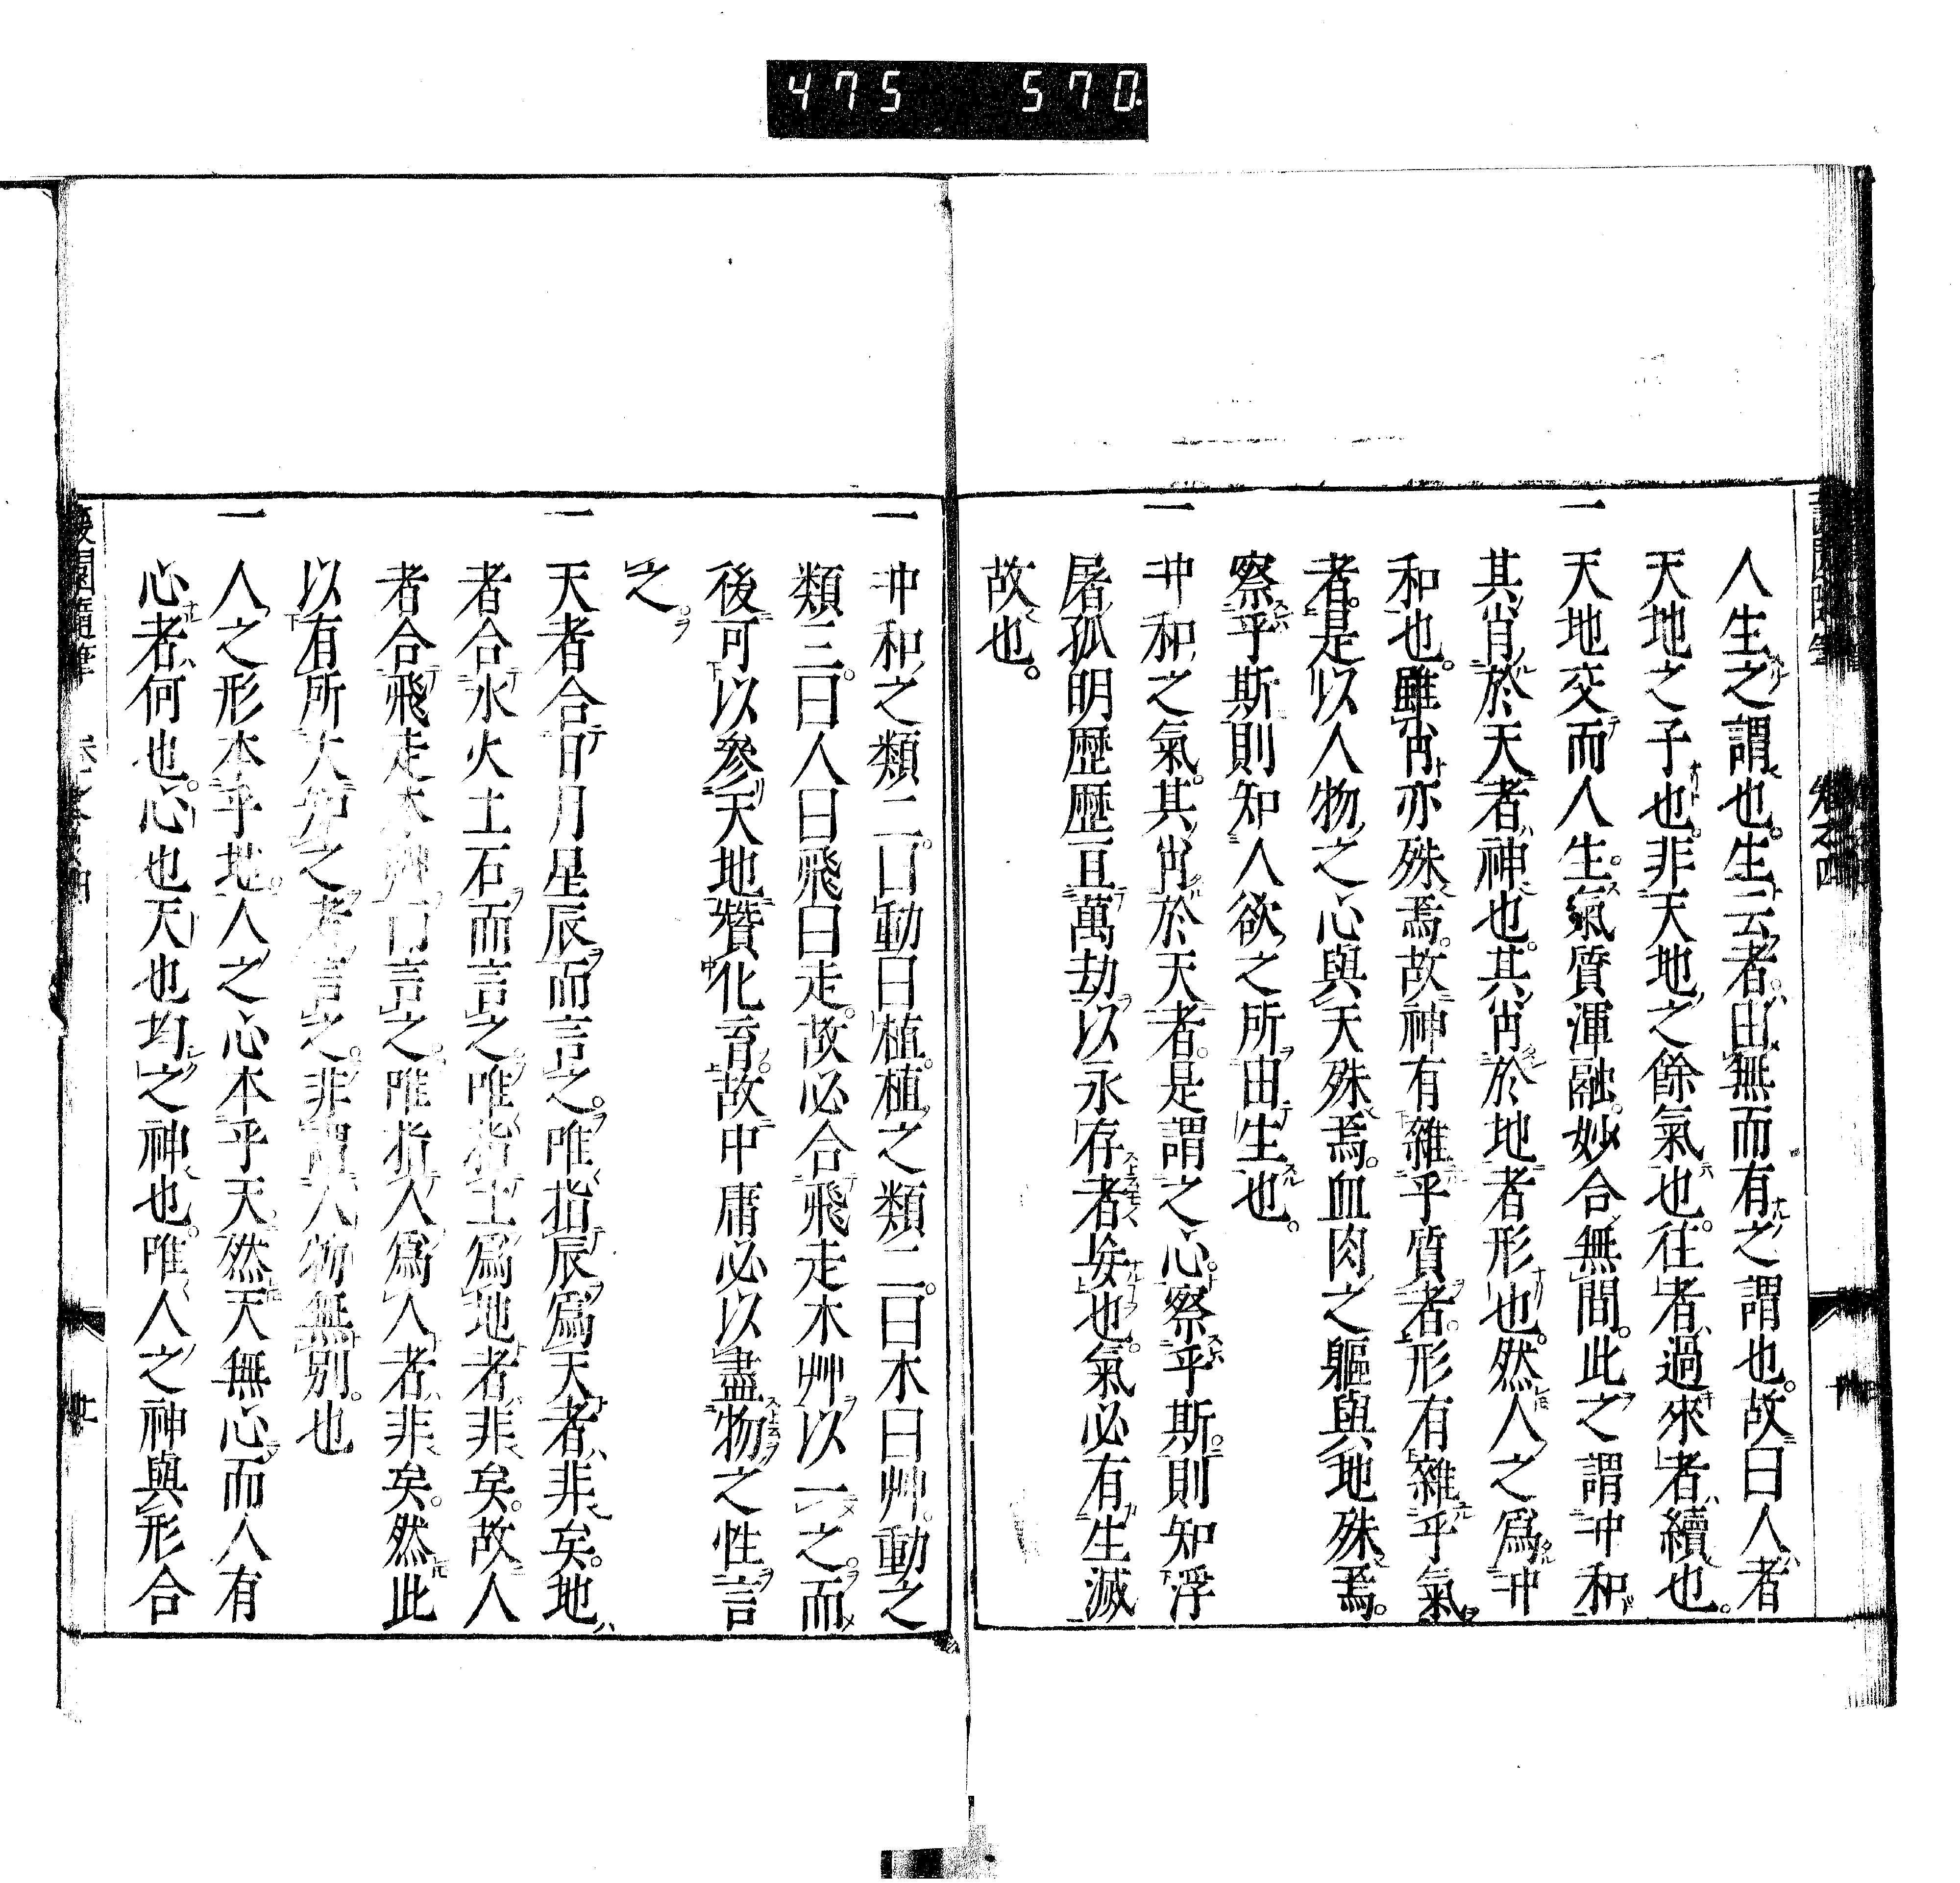 475 570
人生之謂也。生云者。由無而有之謂也。故曰人者
天地之子也。非天地之餘氣也。往者過來者續也。
一天地交而人生。氣質渾融。妙合無間。此之謂冲和
其肖於天者神也。其肖於地者形也。然人之爲冲
和也。雖肖亦殊焉。故神有雜乎質者。形有雜乎氣
者。是以人物之心與天殊焉。血肉之軀與地殊焉。
察乎斯則知人欲之所由生也。
一冲和之氣。其肖於天者。是謂之心。察乎斯。則知浮
屠孤明歷歷亘萬劫以永存者妄也。氣必有生滅
故也。
一冲和之類二。曰動曰植。植之類二。曰木曰艸。動之
類三。曰人曰飛曰走。故必合飛走木艸以一之。而
後可以參天地贊化育。故中庸必以盡物之性言
之。
一天者合日月星辰而言之。唯指辰爲天者非矣。地
者合水火土石而言之。唯指土爲地者非矣。故人
者合飛走木艸而言之。唯指人爲人者非矣。然此
以有所大知之者言之。非謂人物無別也
一人之形本乎地。人之心本乎天。然天無心而人有
心者何也。心也天也均之神也。唯人之神與形合
蘐園隨筆 卷之四 廿